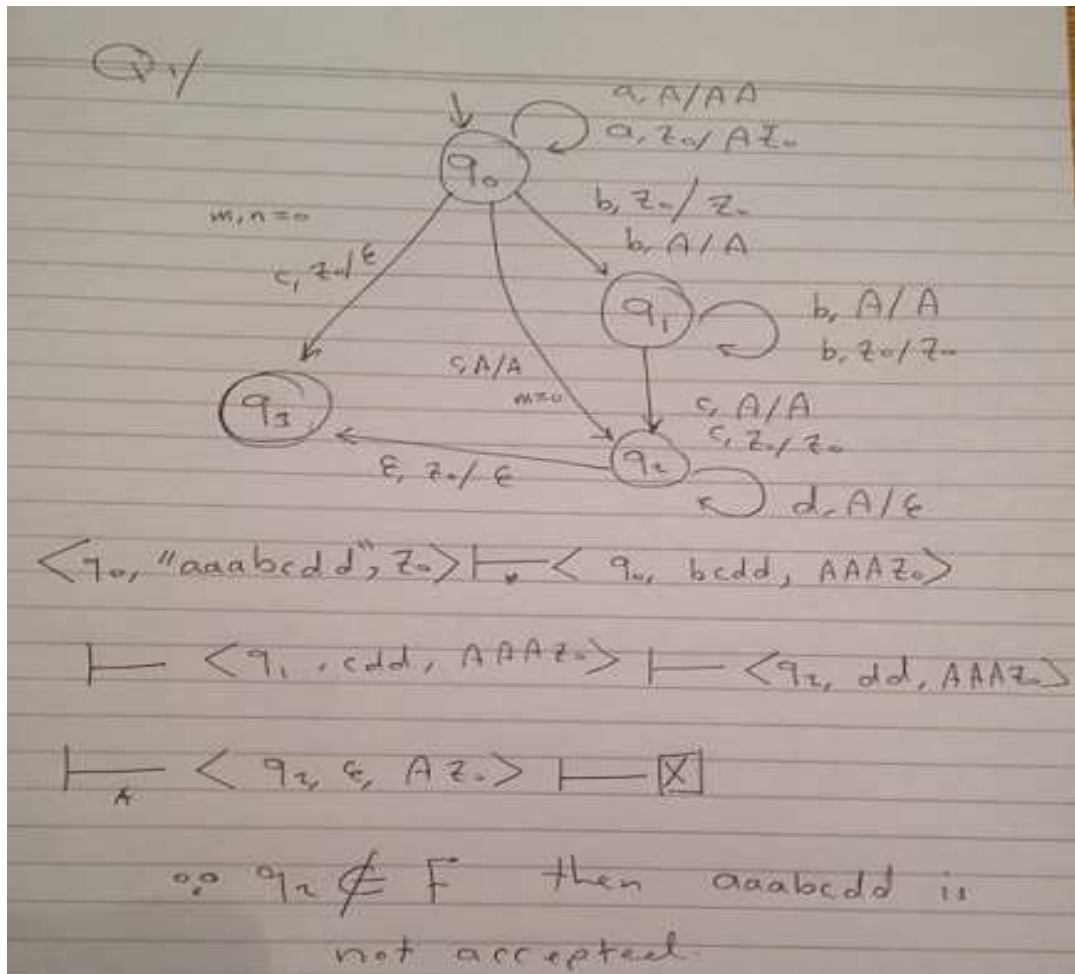 Q1/
a, A/AA
a, Z₀/AZ₀
q₀
b, Z₀/Z₀
m, n=0
b, A/A
c, Z₀/ε
q₁
b, A/A
b, Z₀/Z₀
c, A/A
m=0
q₃
c, A/A
c, Z₀/Z₀
q₂
ε, Z₀/ε
d, A/ε
<q₀, "aaabcdd", Z₀> ⊢* < q₀, bcdd, AAAZ₀>
⊢ <q₁, cdd, AAAZ₀> ⊢ <q₂, dd, AAAZ₀>
⊢* < q₂, ε, AZ₀> ⊢ ☒
∵ q₂ ∉ F then aaabcdd is
not accepted.